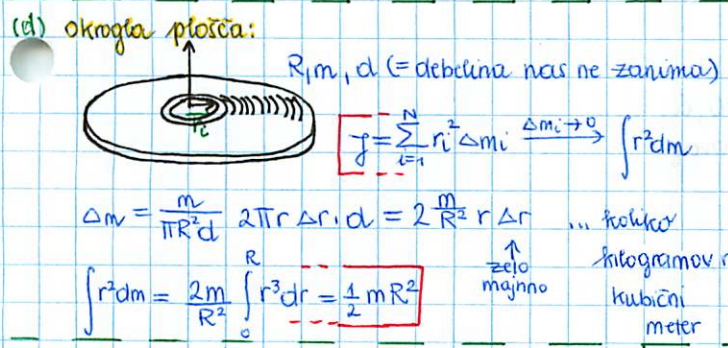 (d) okrogla plošča:
R, m, d (= debelina nas ne zanima)
r_i
J = Σ_{i=1}^{N} r_i² Δm_i  →^{Δm_i → 0}  ∫ r² dm
Δm = m/(πR²d) 2πr Δr · d = 2 m/R² r Δr ... koliko
↑ zelo majhno
kilogramov
kubični
meter
∫ r² dm = 2m/R² ∫_0^R r³ dr = 1/2 mR²